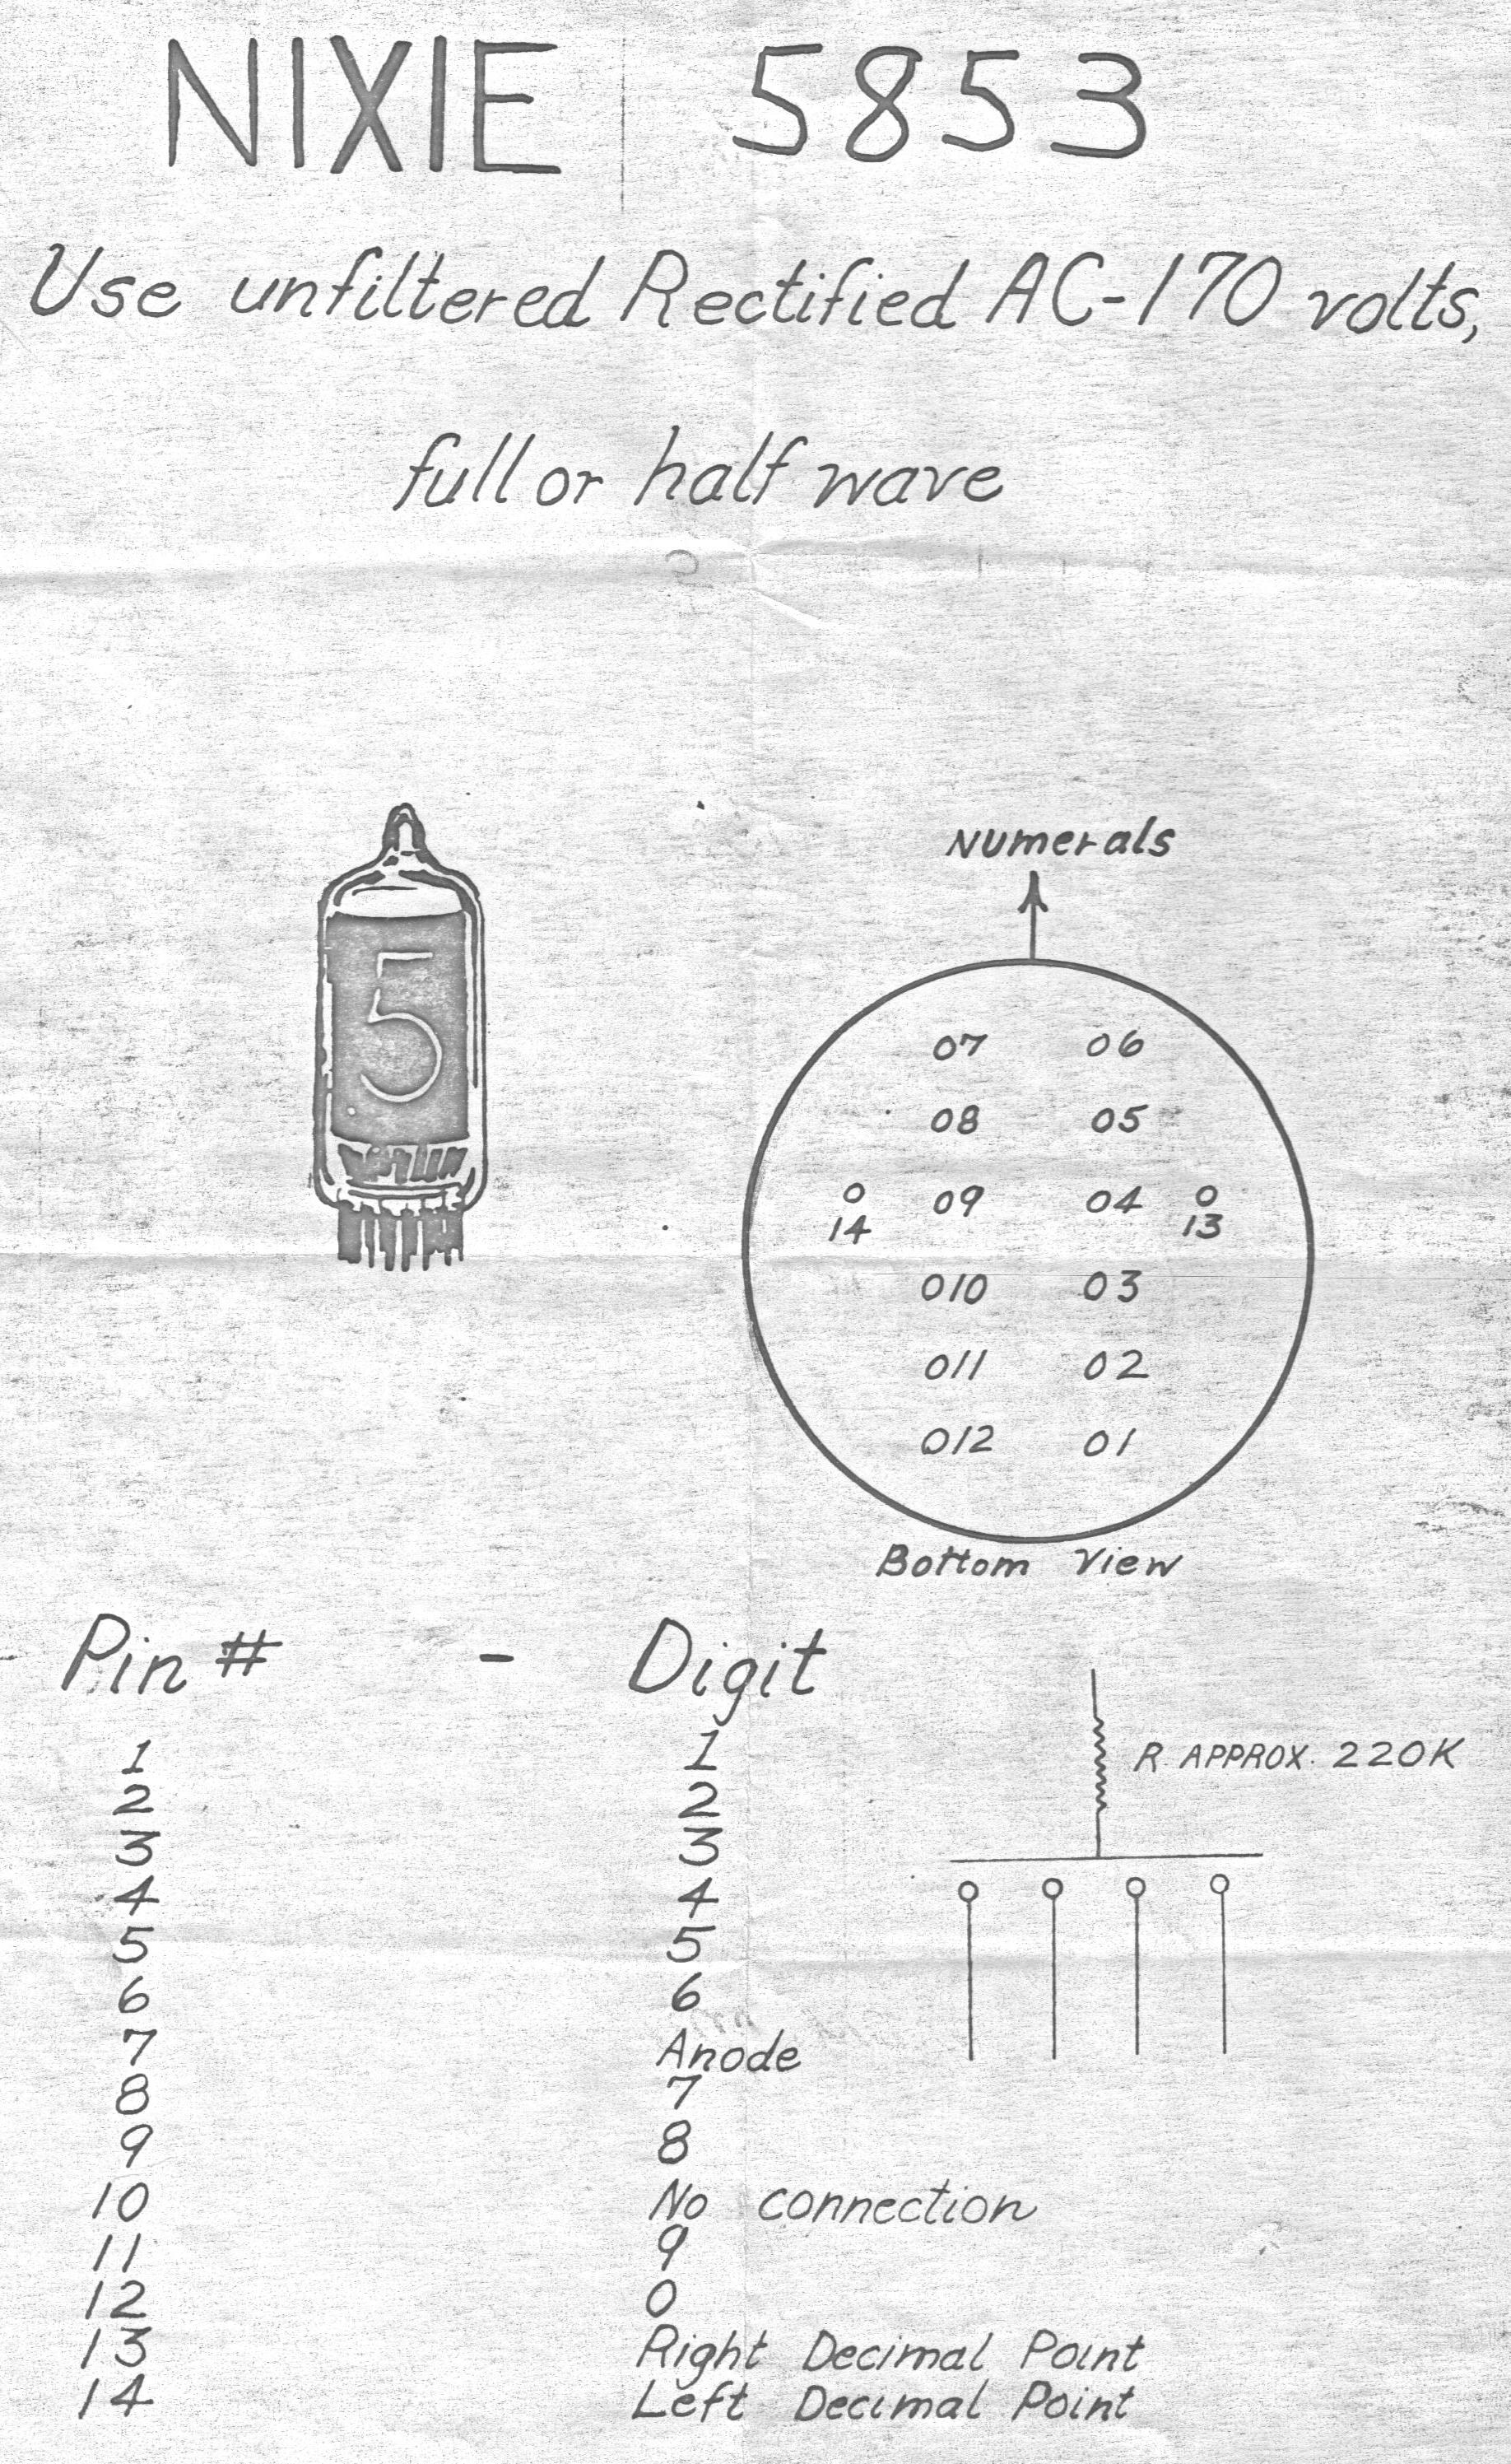 NIXIE 5853
Use unfiltered Rectified AC-170 volts,
full or half wave
5
Numerals
07 06
08 05
0 09 04 0
14 13
010 03
011 02
012 01
Bottom View
Pin # - Digit
1 1
R. APPROX. 220K
2 2
3 3
4 4
5 5
6 6
7 Anode
8 7
9 8
10 No connection
11 9
12 0
13 Right Decimal Point
14 Left Decimal Point